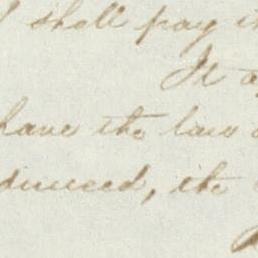 I shall pay
It
have the law
duced, the